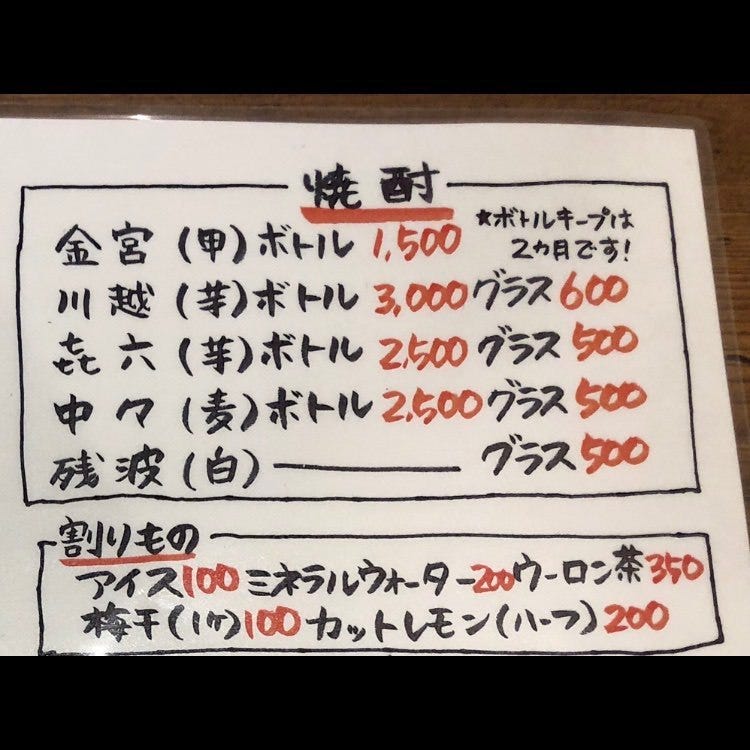 焼酎
金宮(甲)ボトル 1,500 ★ボトルキープは
2カ月です!
川越(芋)ボトル 3,000 グラス 600
㐂六(芋)ボトル 2,500 グラス 500
中々(麦)ボトル 2,500 グラス 500
残波(白) グラス 500
割りもの
アイス100 ミネラルウォーター200 ウーロン茶350
梅干(1ケ)100 カットレモン(ハーフ)200